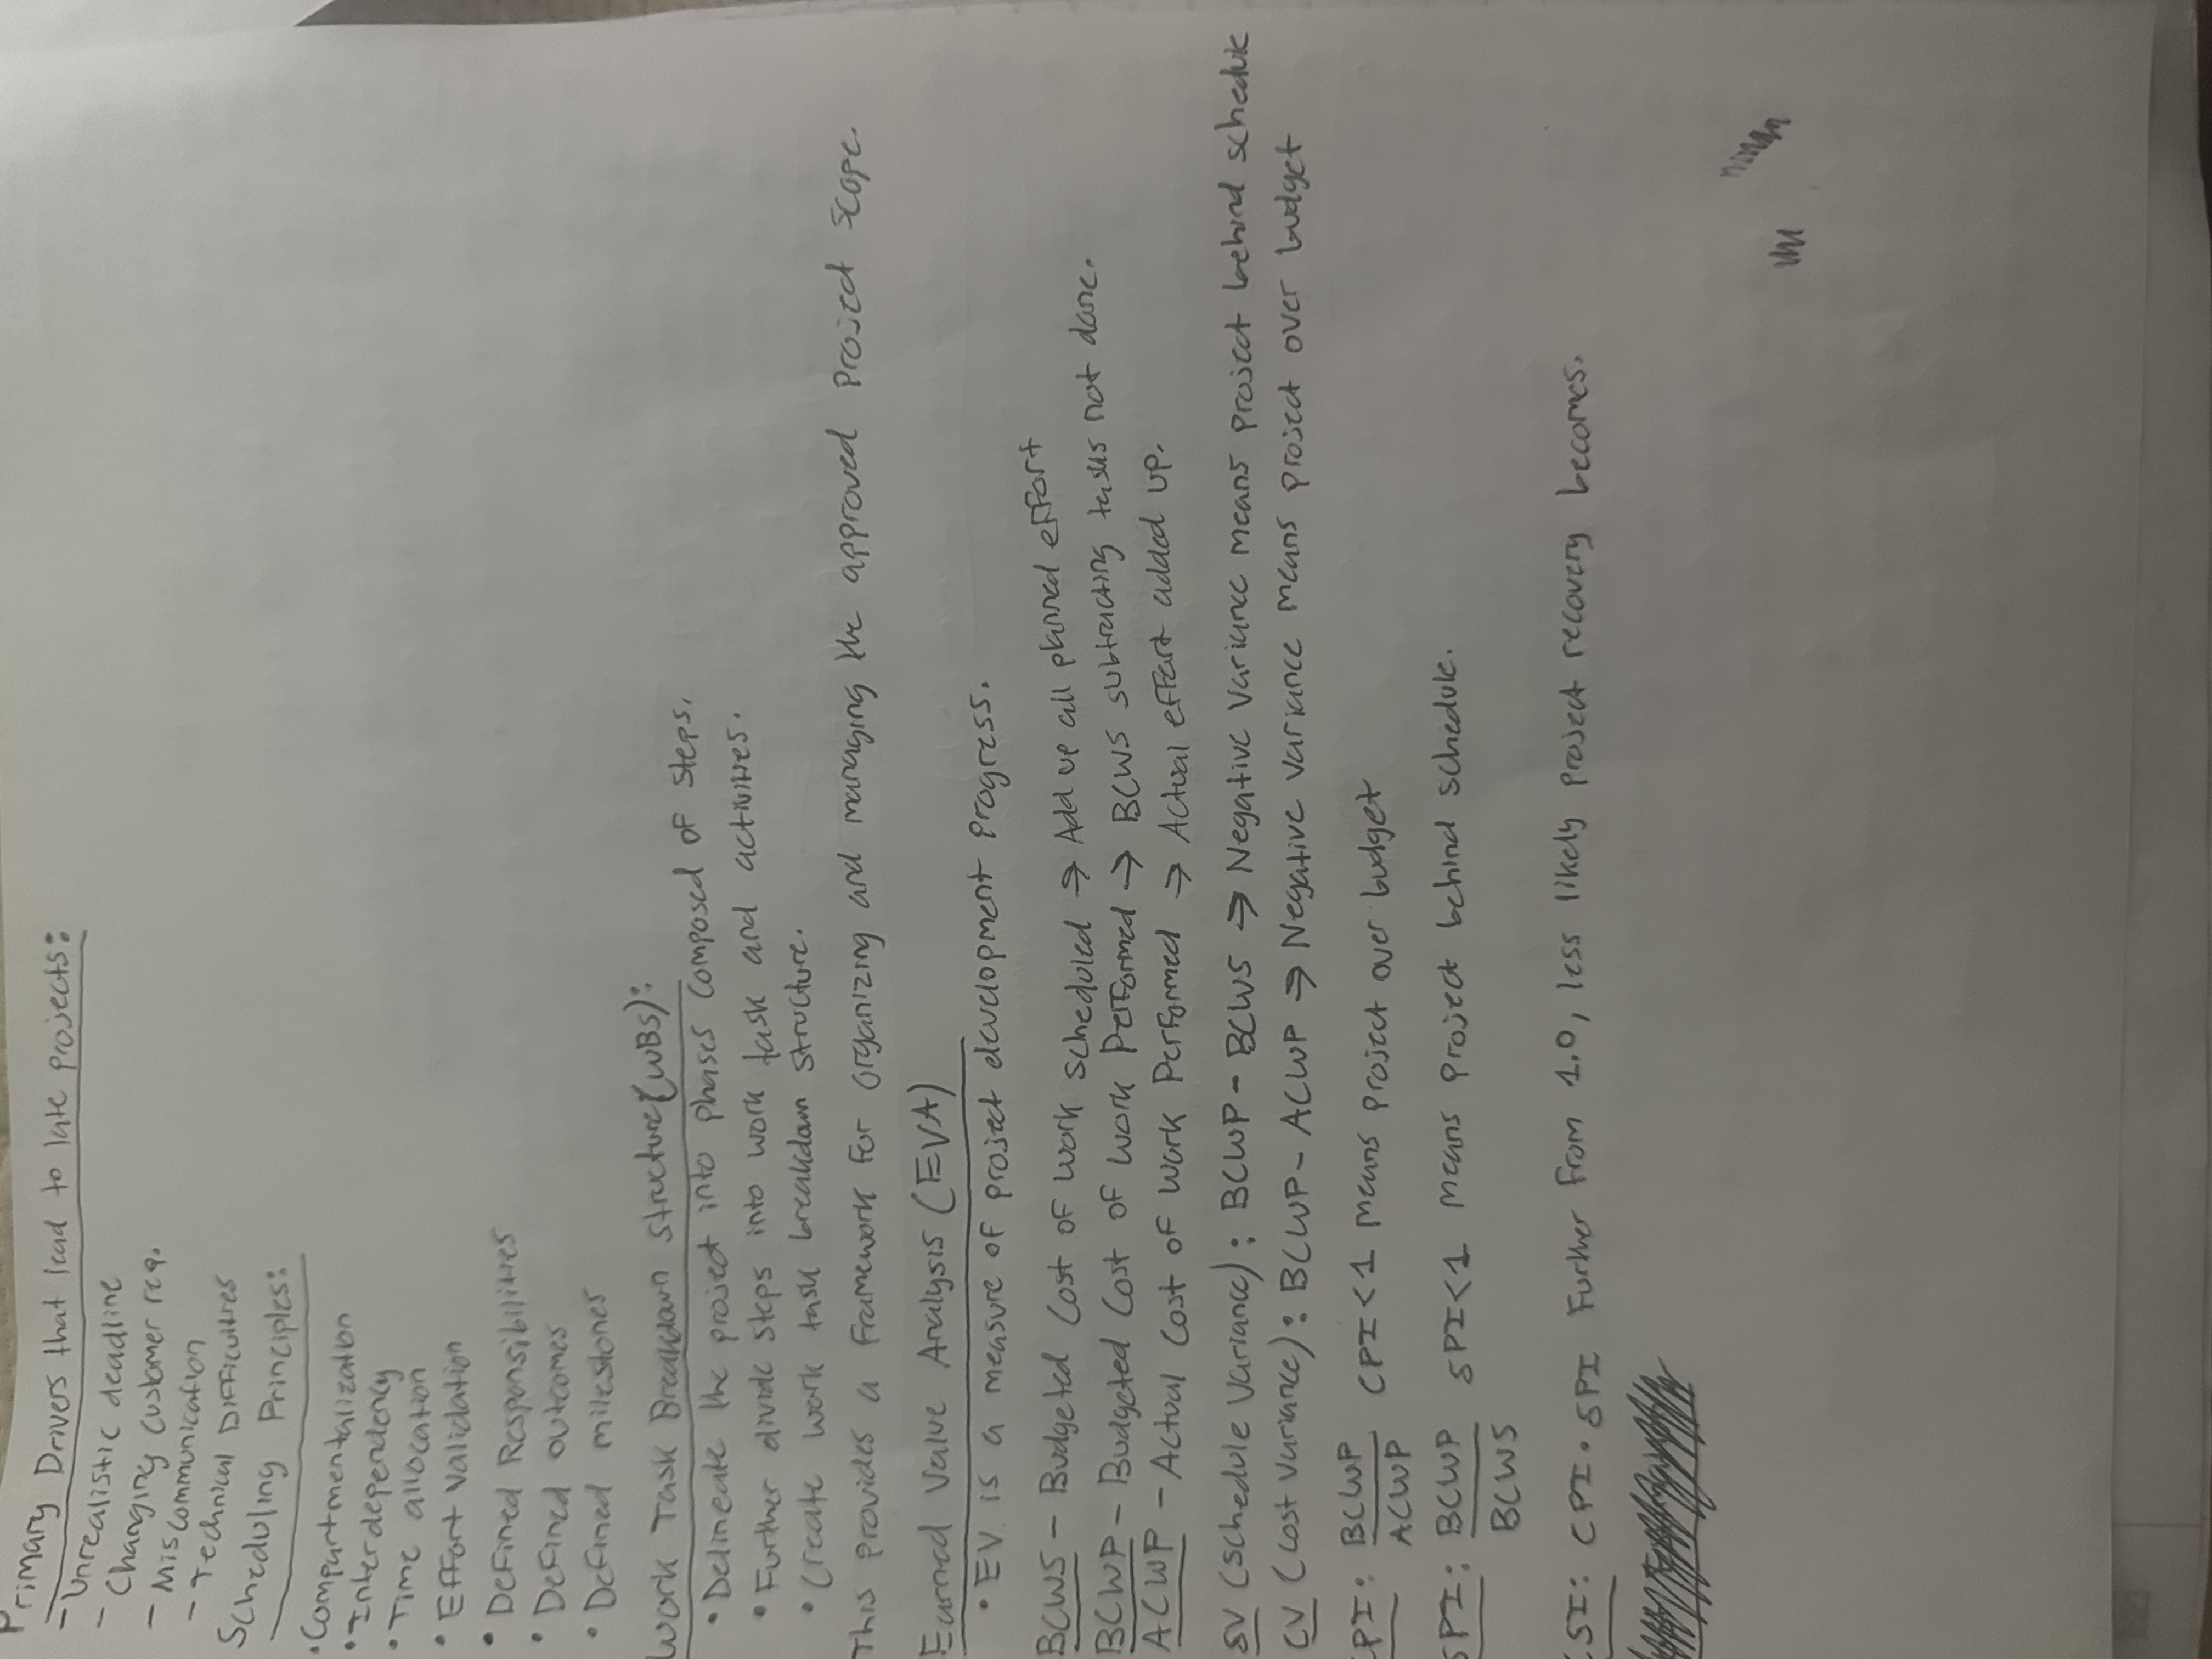 Primary Drivers that lead to late projects:
- Unrealistic deadline
- Changing customer req.
- Miscommunication
- Technical Difficulties
Scheduling Principles:
• Compartmentalization
• Interdependency
• Time allocation
• Effort Validation
• Defined Responsibilities
• Defined outcomes
• Defined milestones
Work Task Breakdown Structure (WBS):
• Delineate the project into phases composed of steps.
• Further divide steps into work task and activities.
• Create work task breakdown structure.
This provides a framework for organizing and managing the approved project scope.
Earned Value Analysis (EVA)
• EV is a measure of project development progress.
BCWS - Budgeted Cost of Work Scheduled → Add up all planned effort
BCWP - Budgeted Cost of Work Performed → BCWS subtracting tasks not done.
ACWP - Actual Cost of Work Performed → Actual effort added up.
SV (Schedule Variance): BCWP - BCWS → Negative Variance means project behind schedule
CV (Cost Variance): BCWP - ACWP → Negative Variance means project over budget
CPI: BCWP / ACWP CPI < 1 means project over budget
SPI: BCWP / BCWS SPI < 1 means project behind schedule.
CSI: CPI • SPI Further from 1.0, less likely project recovery becomes.